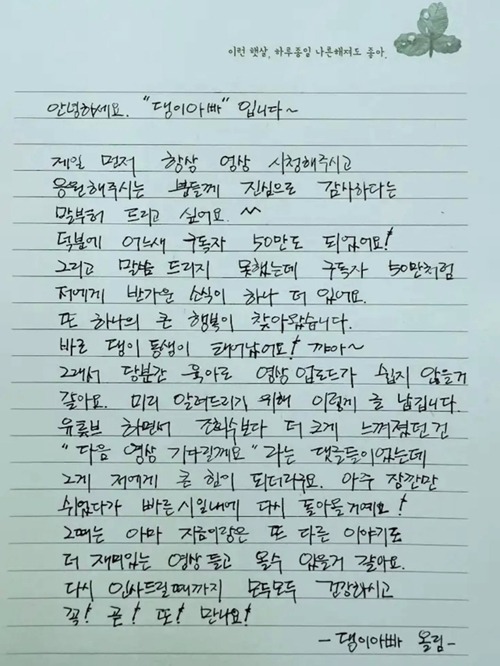 이런 햇살, 하루종일 나른해져도 좋아.
안녕하세요. "댕이아빠" 입니다~
제일 먼저 항상 영상 시청해주시고
응원해주시는 분들께 진심으로 감사하다는
말부터 드리고 싶어요. ^^
덕분에 어느새 구독자 50만도 되었어요!
그리고 말씀 드리지 못했는데 구독자 50만처럼
저에게 반가운 소식이 하나 더 있어요.
또 하나의 큰 행복이 찾아왔습니다.
바로 댕이 동생이 태어났어요! 꺄아~
그래서 당분간 육아로 영상 업로드가 쉽지 않을거
같아요. 미리 알려드리기 위해 이렇게 글 남깁니다.
유튜브 하면서 조회수보다 더 크게 느껴졌던 건
"다음 영상 기다릴께요" 라는 댓글들이었는데
그게 저에게 큰 힘이 되더라구요. 아주 잠깐만
쉬었다가 빠른시일내에 다시 돌아올게예요!
그때는 아마 지금이랑은 또 다른 이야기로
더 재미있는 영상 들고 올수 있을거 같아요.
다시 인사드릴때까지 모두모두 건강하시고
꼭! 곧! 또! 만나요!
- 댕이아빠 올림 -